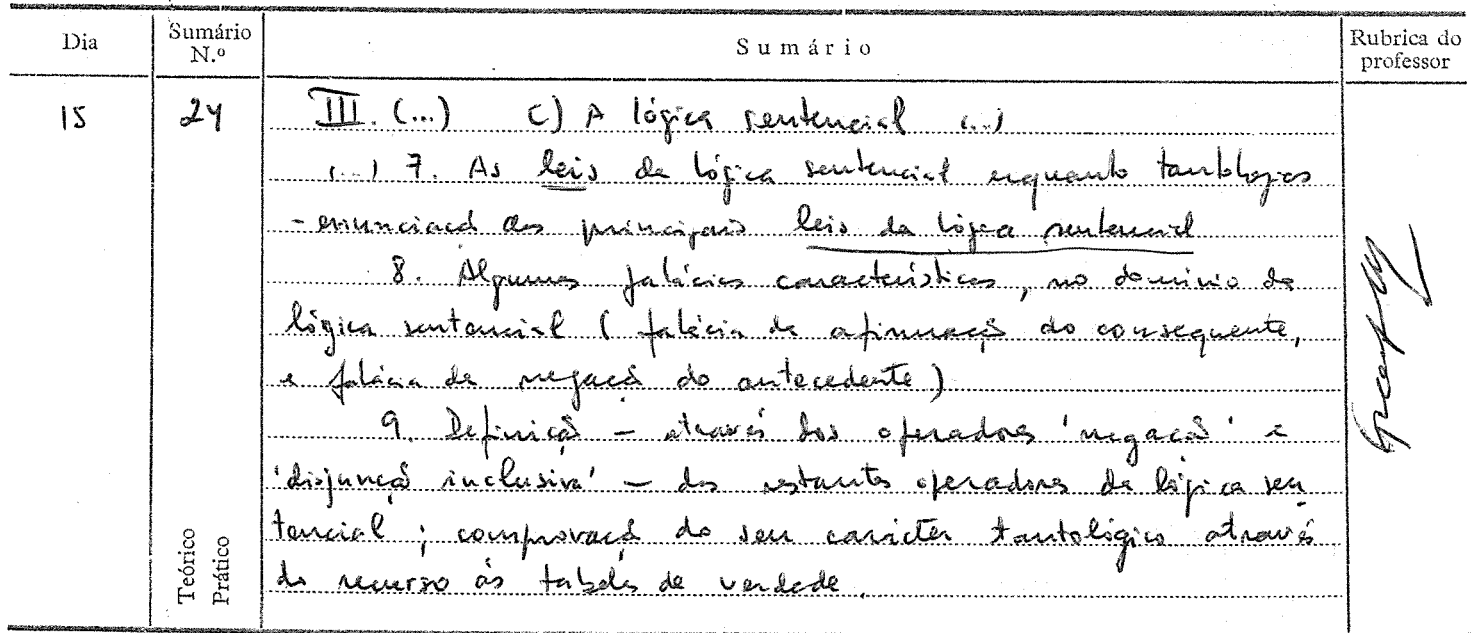 Dia
Sumário N.º
Sumário
Rubrica do professor
15
24
III. (...) C) A lógica sentencial (...)
(...) 7. As leis da lógica sentencial enquanto tautologias
- enunciação das principais leis da lógica sentencial
8. Algumas falácias características, no domínio da
lógica sentencial (falácia da afirmação do consequente,
e falácia da negação do antecedente)
9. Definição – através dos operadores 'negação' e
'disjunção inclusiva' – dos restantes operadores da lógica sen
tencial ; comprovação do seu carácter tautológico através
do recurso às tabelas de verdade.
Teórico
Prático